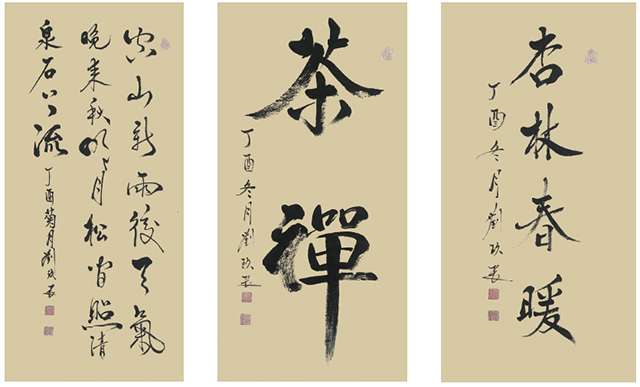 空山新雨後天氣
晚来秋明月松間照清
泉石上流
丁酉菊月劉玖
茶禪
丁酉冬月劉玖
杏林春暖
丁酉冬月劉玖